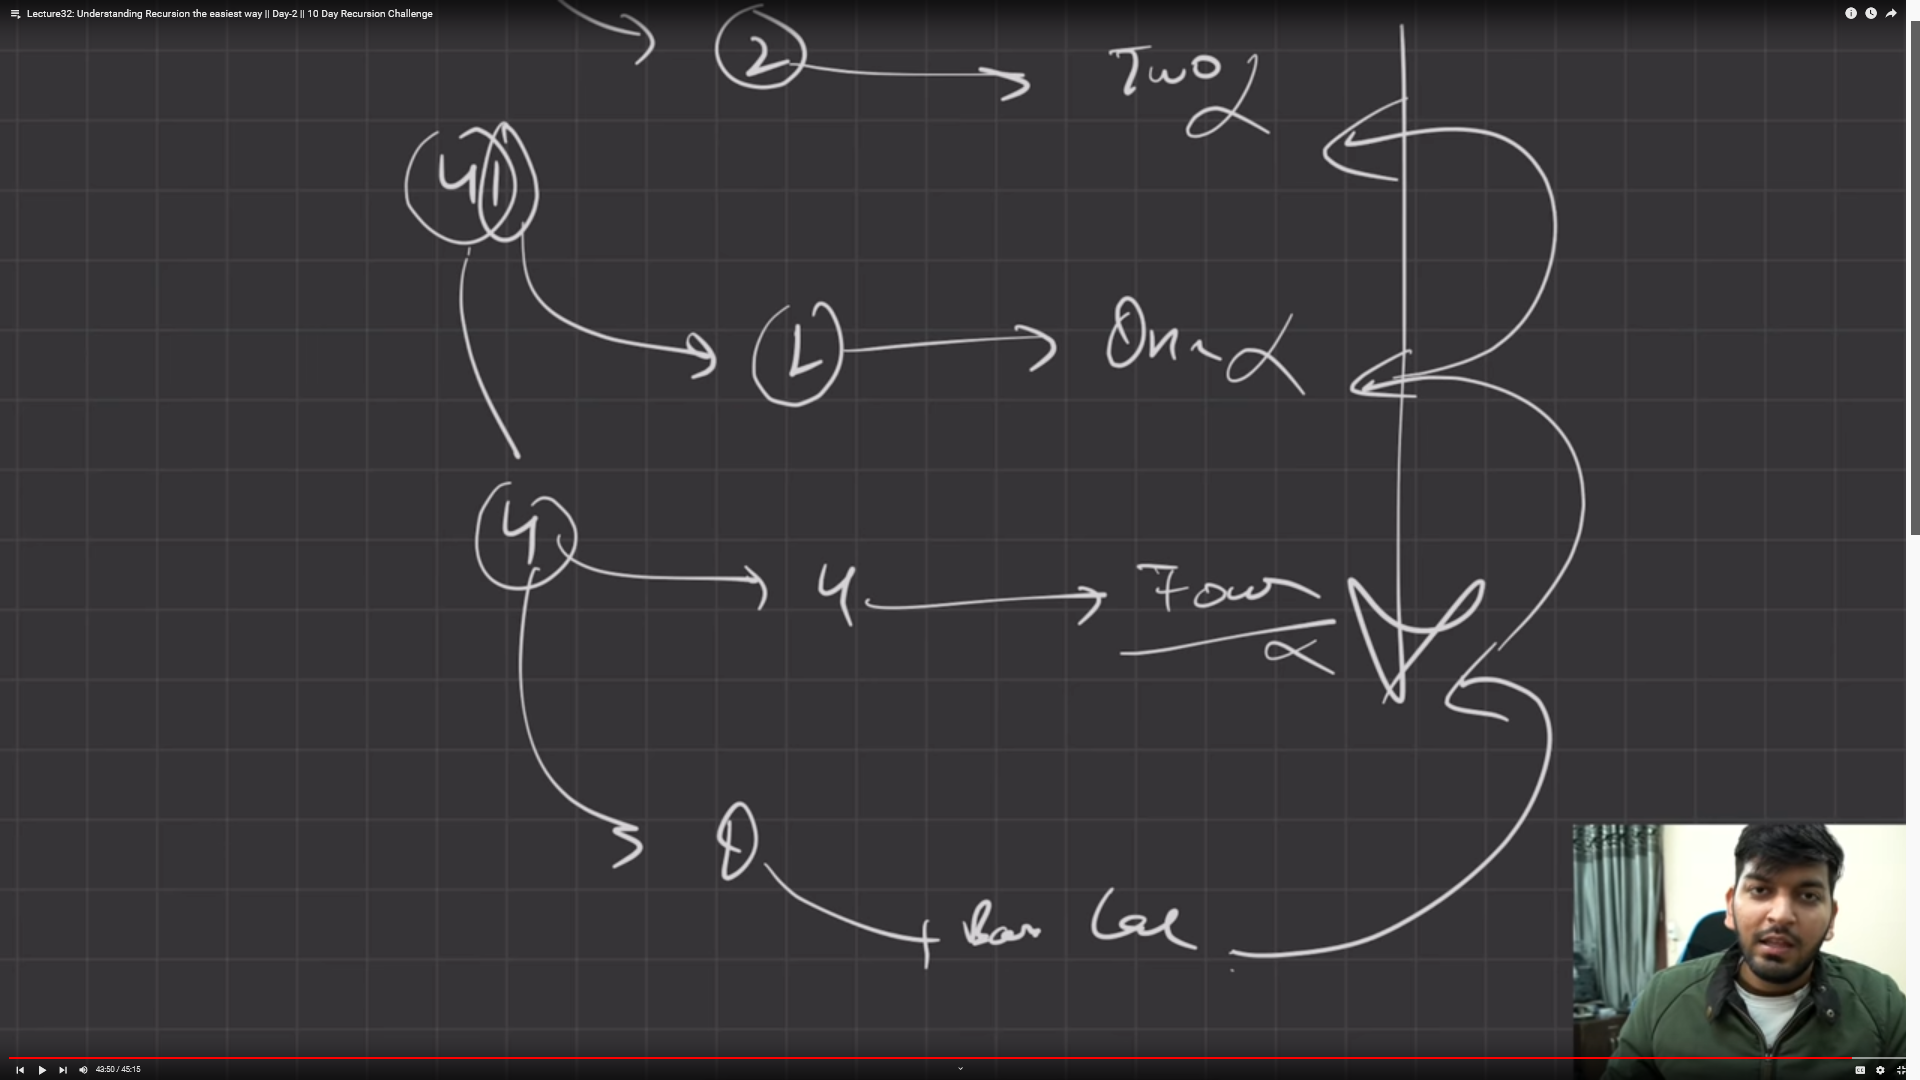 Lecture32: Understanding Recursion the easiest way || Day-2 || 10 Day Recursion Challenge
2 Two
41
1 One
4 4 Four
0
Base Case
43:50 / 45:15